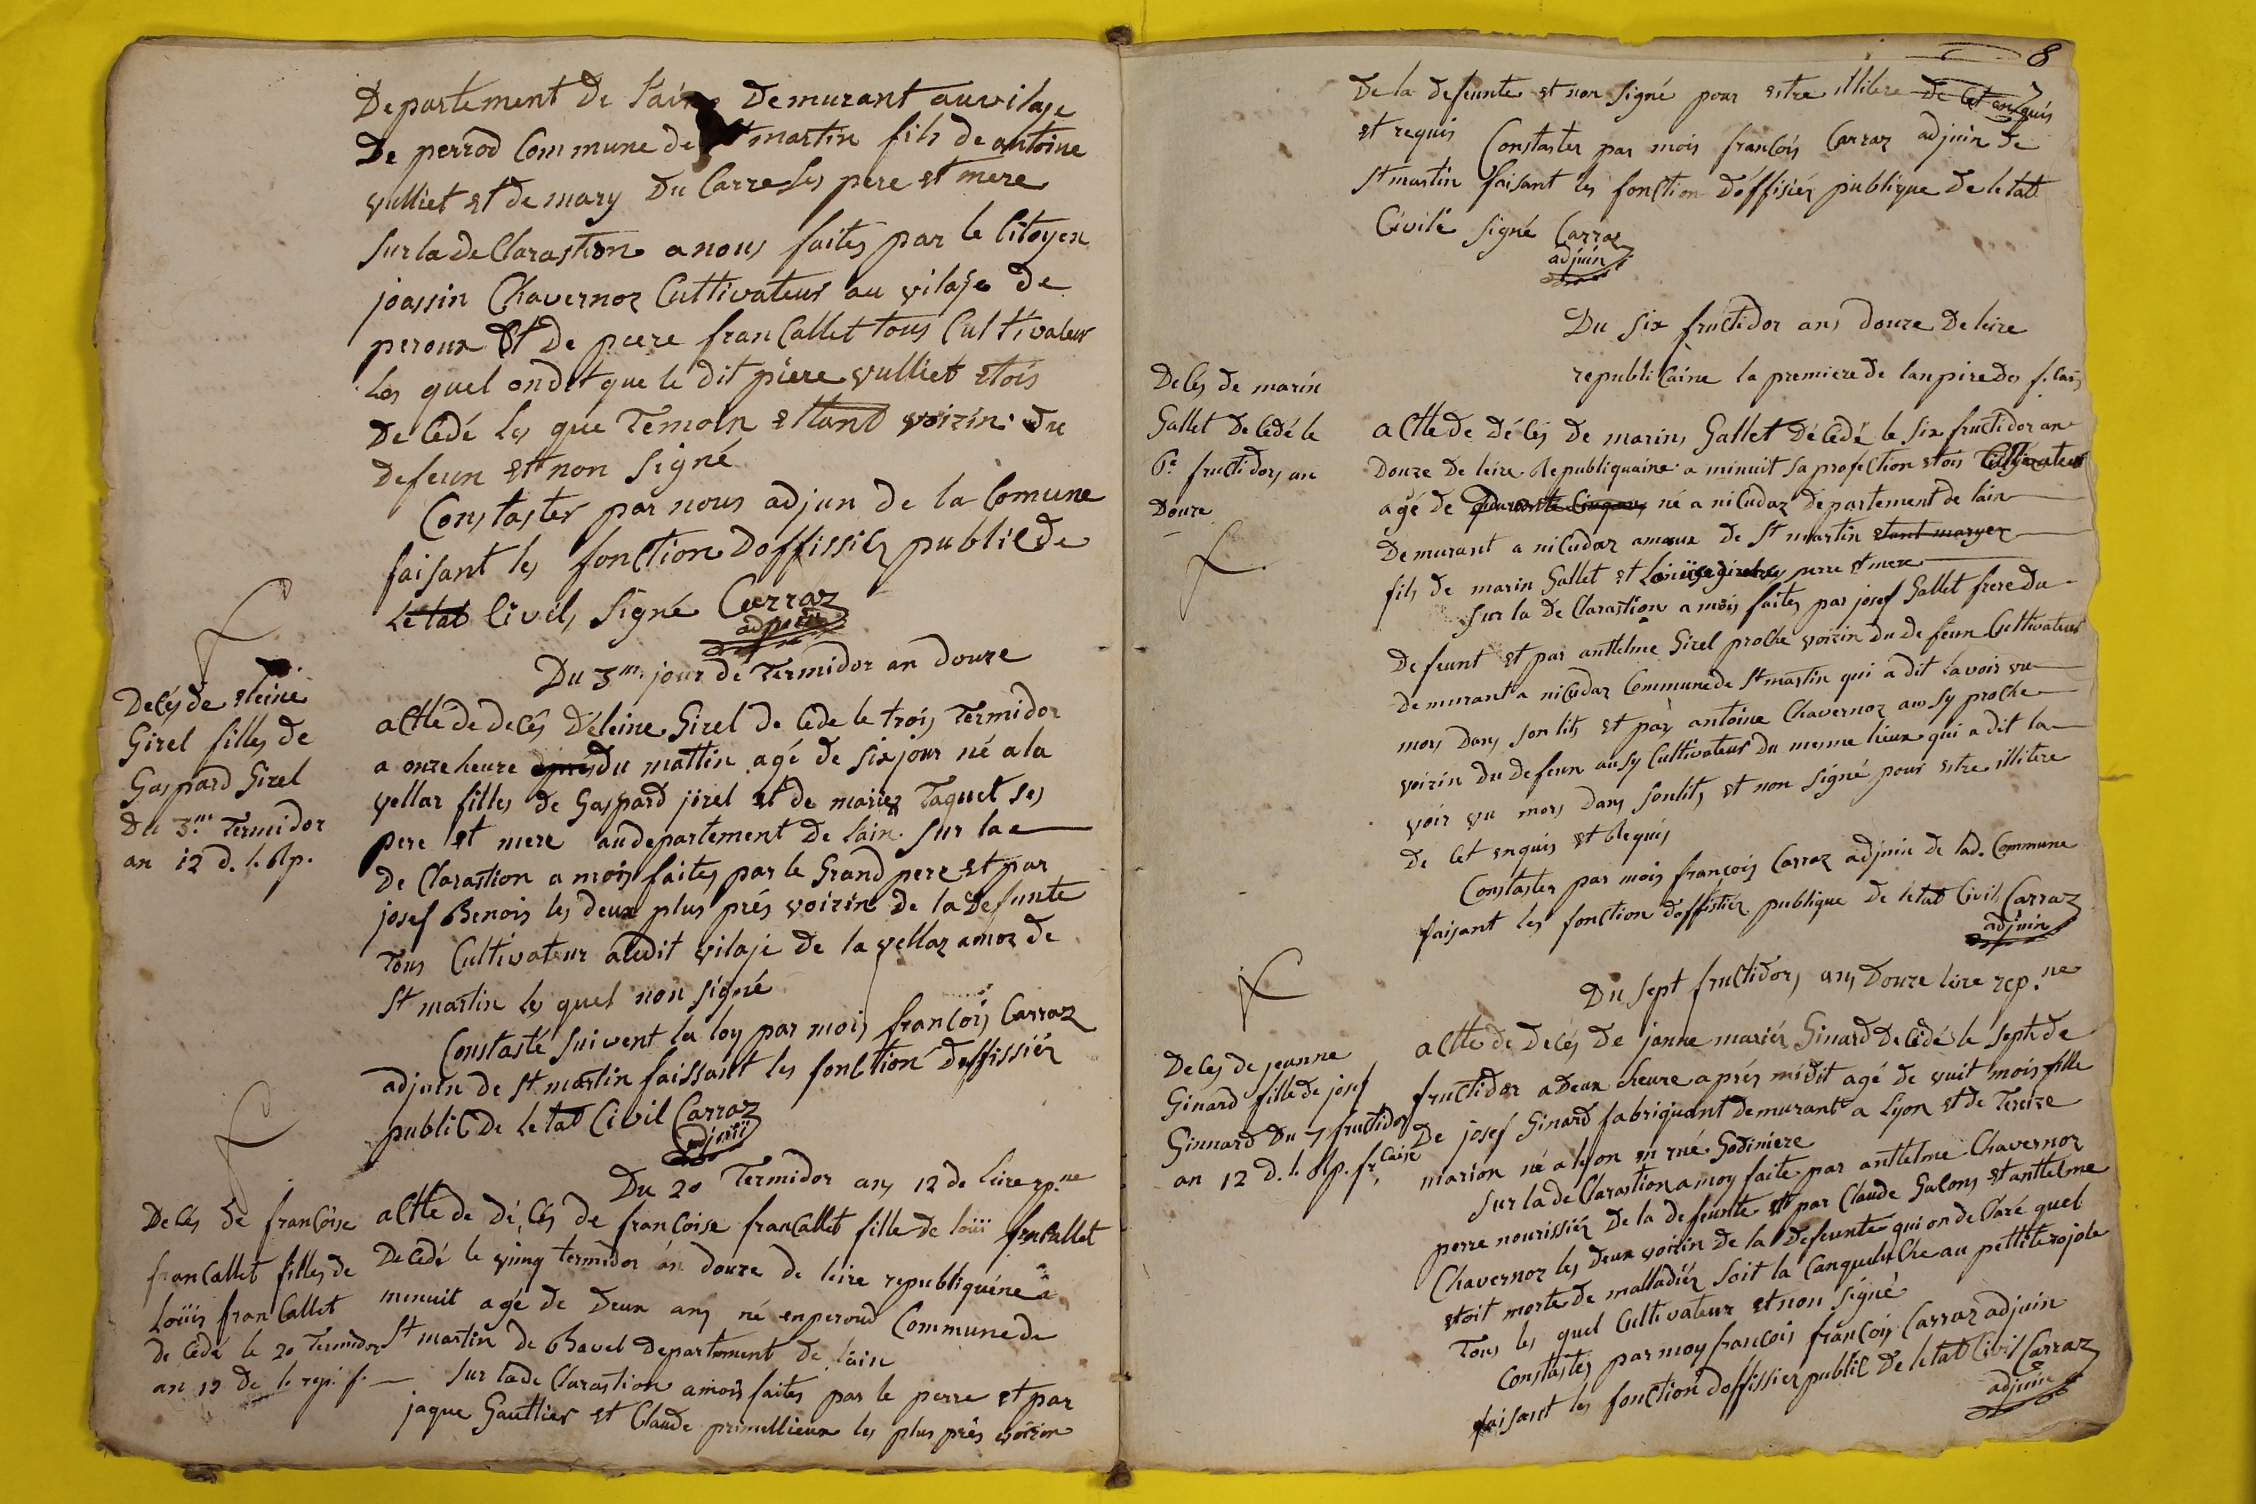 Departement de l'ain Demurant au vilaje
De perrod Commune de St martin fils de antoine
vulliet et de mary Du Carre ses pere et mere
sur la de Clarastion a nous faites par le Citoyen
joassin Chavernoz Cultivateur au vilaje de
peroux et de piere francallet tous Cultivateur
Les quel ondit que le dit piere vulliet etois
De Cedé les que Temoin ettant voizin du
defeun et non signé
Constaster par nous adjun de la Comune
faisant les fonction doffissier publil de
Letat Civil, signé Carraz
adjuin
Du 3me jour de Termidor an douze
Decés de eleine
Girel filles de
Gaspard Girel
Du 3.me Termidor
an 12 d. le Rp.
actte de decés d'eleine Girel de cede le trois Termidor
a onze heure du mattin agé de six jour né a la
vellaz filles de Gaspard jirel et de mariez Taquet ses
pere et mere au departement de lain. sur la
de Clarastion a mois faites par le Grand pere et par
josef Benois les deux plus prés voizin de la defunte
Tous Cultivateur audit vilaje de la vellaz amoz de
St martin les quel non signé
Constasté suivent la loy par mois françois Carraz
adjuin de St martin faissant les fonction doffissiér
publil de Letat Civil Carraz
adjuin
Du 20 Termidor ans 12 de Leire rp.ne
Decés de françoise
franCallet filles de
Loüis franCallet
de Cedé le 20 Termidor
an 12 de le rep. f.
actte de dé cés de françoise franCallet fille de loüi franCallet
De Cedé le ving termidor an douze de leire republiquéne a
minuit agé de deux ans né en peroud Commune de
St martin de Bavel Departement de l'ain
sur la de Clarastion a mois faites par le perre et par
jaque Gauttier et Claude primellieux les plus prés voizin
8
De la defeunte et non signé pour estre illitere de Cet enquis
et requis
Constaster par mois françois Carraz adjuin de
St martin faisant les fonction d'offisiér publique de letat
Civile signé Carraz
adjuin
Du six fructidor ans douze de leire
republiCaine la premiere de lanpire des f.
Deces de marin
Gallet De Cedé le
6e fructidor, an
Douze
actte de dé cés de marin, Gallet dé Cedé le six fructidor an
Douze de leire Republiquaine a minuit sa profection etois Cultivateur
agé de quarante Cinq ans, né a niCudaz departement de lain
Demurant a niCudaz amaux de St martin etant maryez
fils de marin Gallet et Louïse perre et mere
sur la de Clarastion a mois faites par josef Gallet frere du
defeunt et par anttelme Girel proche voizin du defeun Cultivateur
demurant a niCudaz Commune de St martin qui a dit lavoir vu
mors dans son lits et par antoine Chavernoz aussy proche
voizin du defeun ausy Cultivateur du mesme lieux qui a dit la
voir vu mors dans son lits et non signé pour estre illitere
De Cet enquis et Requis
Constaster par mois françois Carraz adjuin de lad. Commune
faisant les fonction doffistiér publique de letat Civil Carraz
adjuin
Du sept fructidor, ans Douze leire rep.ne
Deces de jeanne
Ginard fille de josef
Ginnard Du 7 fructidor
an 12 d. le Rp. fr.Caise
actte de decés de janne mariér Ginard De Cédé le sept de
fructidor a Deux heure aprés midit agé de vuit mois fille
De josef Ginard fabriquant demurant a Lyon et de Tereze
marion né a lyon en rué Godiniere
sur la de Clarastion a moy faite par anttelme Chavernoz
perre nourissiér De la defeunte et par Claude Galons et anttelme
Chavernoz les deux voizin de la Defeunte qui on de Claré quel
etoit morte de malladiér soit la Canqueluche au pettite rojole
Tous les quel Cultivateur et non signé
Constastés par moy francois françois Carraz adjuin
faisant les fonction doffissier publil de letat Civil Carraz
adjuin